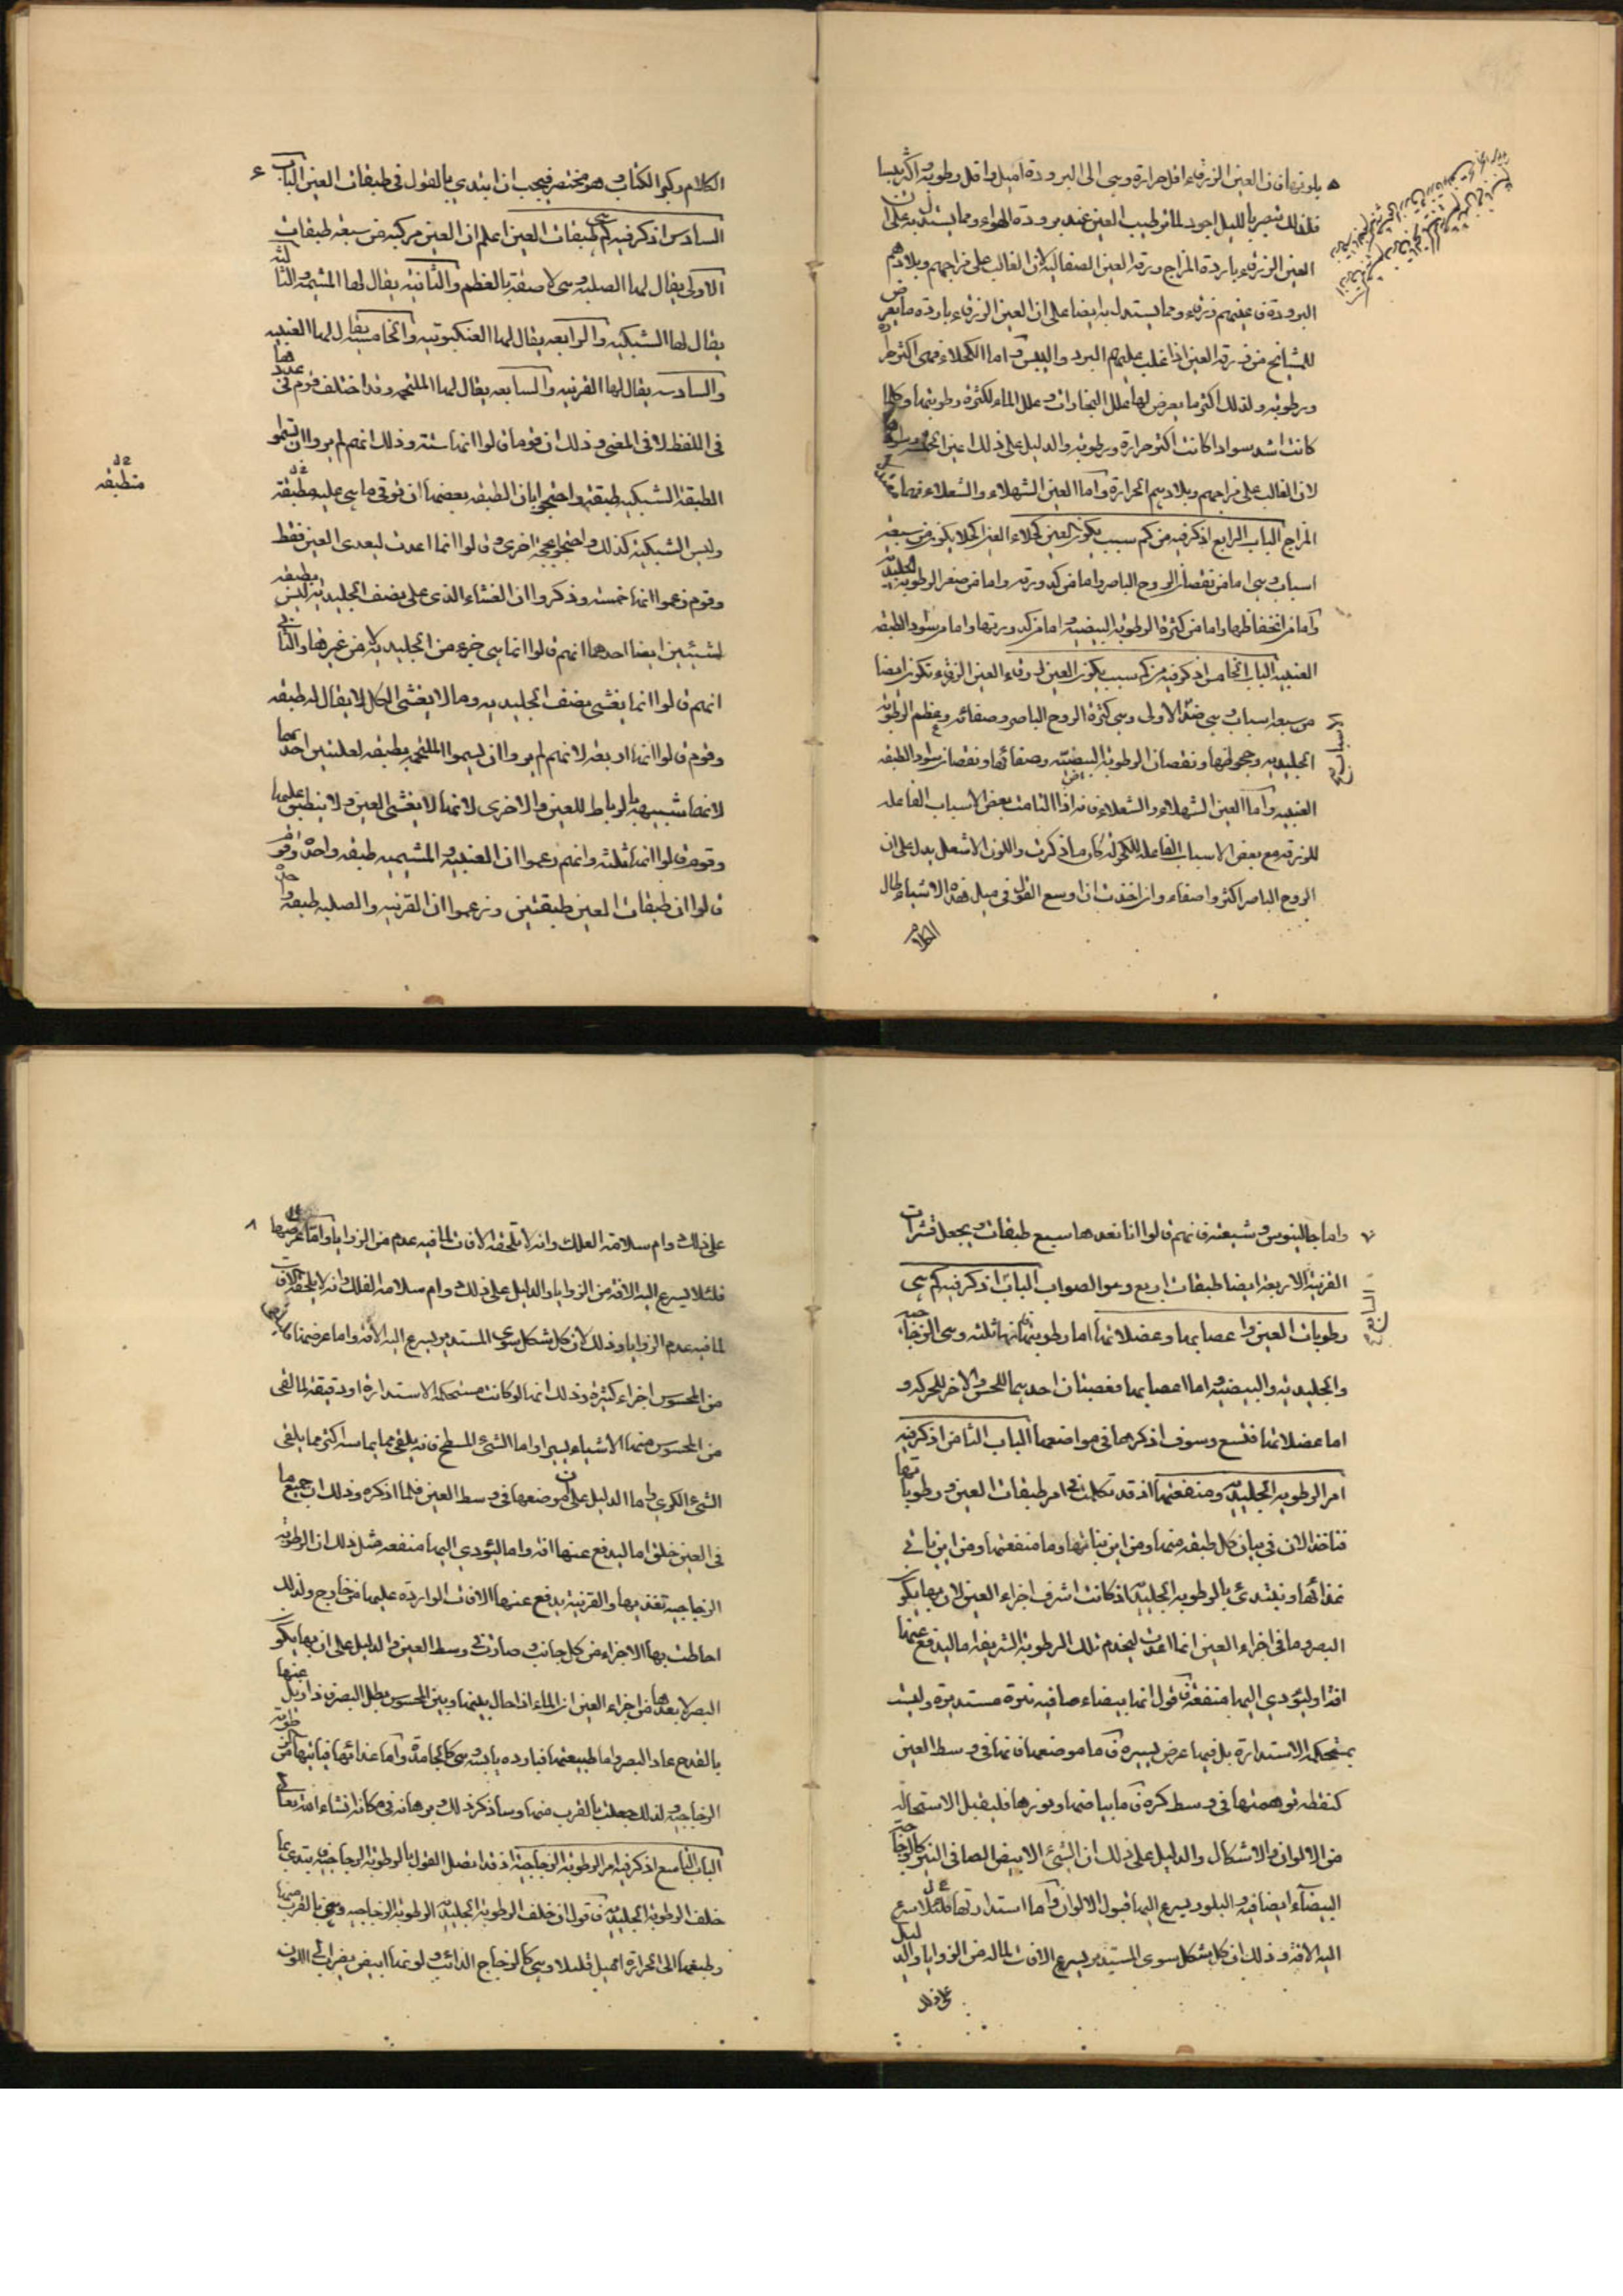 ٥ بلونها فان العين الزرقاء اقل حرارة وهى الى البرودة اميل واقل رطوبة واكثر يبسا
فلذلك تبصر بالليل اجود لما ترطيب العين عند برودة الهواء ومما يستدل به على ان
العين الزرقاء باردة المزاج زرقة العين الصقالبة لان الغالب على مزاجهم وبلادهم
البرودة فاعينهم زرقاء ومما يستدل به ايضا على ان العين الزرقاء باردة ما يعرض
للمشايخ من زرقة العين اذا غلب عليهم البرد واليبس واما الكحلاء فهى اكثر حرارة
ورطوبة ولذلك اكثر ما يعرض لها علل البخارات وعلل الماء لكثرة رطوبتها وكلما
كانت اشد سوادا كانت اكثر حرارة ورطوبة والدليل على ذلك عين الحبشة
لان الغالب على مزاجهم وبلادهم الحرارة واما العين الشهلاء والشعلاء فهما
المزاج الباب الرابع اذكر فيه من كم سبب يكون العين كحلاء العين الكحلا يكون من سبعة
اسباب وهى اما من نقصان الروح الباصر واما من كدورته واما من صغر الرطوبة الجليدية
واما من انخفاظها واما من كثرة الرطوبة البيضية واما من كدورتها واما من سواد الطبقة
العنبية الباب الخامس اذكر فيه من كم سبب يكون العين زرقاء العين الزرقاء تكون ايضا
من سبعة اسباب وهى ضد الاولى وهى كثرة الروح الباصر وصفائه وعظم الرطوبة
الجليدية وجحوظها ونقصان الرطوبة البيضية وصفائها ونقصان سواد الطبقة
العنبية واما العين الشهلاء والشعلاء فانه اذا التامت بعض الاسباب الفاعلة
للزرقة مع بعض الاسباب الفاعلة للكحولة كان ما ذكرت واللون الاشعل يدل على ان
الروح الباصر اكثر واصفاء وان اخذت ان اوسع القول فى ميل هذه الاشياء طال
الكلام
الكلام وكبر الكتاب وهو مختصر فيجب ان ابتدى بالقول فى طبقات العين الباب ٦
السادس اذكر فيه كم هى طبقات العين اعلم ان العين مركبة من سبعة طبقات
الاولى يقال لها الصلبة وهى لاصقة بالعظم والثانية يقال لها المشيمة والثالثة
يقال لها الشبكية والرابعة يقال لها العنكبوتية والخامسة يقال لها العنبية
والسادسة يقال لها القرنية والسابعة يقال لها الملتحمة وقد اختلف قوم فى عددها
فى اللفظ لا فى المعنى وذلك ان قوما قالوا انها ستة وذلك انهم لم يروا ان يسموا
الطبقة الشبكية طبقة واحتجوا بان الطبقة بعضها ان توقى ما هى عليه مطبقة
منطبقه
وليس الشبكية كذلك واحتجوا بحجة اخرى وقالوا انما اعدت لتغدى العين فقط
وقوم زعموا انها خمسة وذكروا ان الغشاء الذى على نصف الجليدية ليس بطبقة
لشيئين ايضا احدهما انهم قالوا انما هى جزء من الجليدية لا من غيرها والثانى
انهم قالوا انها يغشى نصف الجليدية وما لا يغشى الكل لا يقال له طبقة
وقوم قالوا انها اربعة لانهم لم يروا ان يسموا الملتحمة بطبقة لعلتين احدهما
لانها شبيهة بالرباط للعين والاخرى لانها لا يغشى العين ولا ينطبق عليها
وقوم قالوا انها ثلثة وانهم زعموا ان العنبية والمشيمية طبقة واحدة وقوم
قالوا ان طبقات العين طبقتين وزعموا ان القرنية والصلبة طبقة واحدة
٧ واما جالينوس وشيعته فانهم قالوا انا نعدها سبع طبقات ويجعل قشرات
القرنية الاربعة ايضا طبقات اربع وهو الصواب الباب اذكر فيه كم هى
السابع
رطوبات العين واعصابها وعضلاتها اما رطوبتها فانها ثلثة وهى الزجاجية
والجليدية والبيضية واما اعصابها فعصبتان احديهما للحس والاخر للحركة و
اما عضلاتها فتسع وسوف اذكرهما فى مواضعها الباب الثامن اذكر فيه
امر الرطوبة الجليدية ومنفعتها اذ قد تكلمت فى امر طبقات العين ورطوباتها
فناخذ الان فى بيان كل طبقة منها ومن اين نباتها وما منفعتها ومن اين ياتى
غذائها ونبتدئ بالرطوبة الجليدية اذ كانت اشرف اجزاء العين لان بها يكون
البصر وما فى اجزاء العين انما اعدت ليخدم تلك الرطوبة الشريفة اما ليدفع عنها
افة او ليؤدى اليها منفعة فاقول انها بيضاء صافية نيرة مستديرة وليست
بمستحكمة الاستدارة بل فيها عرض يسيرة فاما موضعها فانها فى وسط العين
كنقطة توهمتها فى وسط كرة فاما بياضها ونورها فليقبل الاستحالة
من الالوان والاشكال والدليل على ذلك ان الشئ الابيض الصافى النير كالزجاجية
البيضاء الصافية والبلور يسرع اليها قبول الالوان واما استدارتها فلئلا يسرع
اليه الافة وذلك ان كل شكل سوى المستدير يسرع الافات لما له من الزوايا والدليل
على ذلك
على ذلك دوام سلامة الفلك وانه لا تلحقه الافات لما فيه عدم من الزوايا واما عرضها ٨
فلئلا يسرع اليه الافة من الزوايا والدليل على ذلك دوام سلامة الفلك وانه لا يلحقه الافات
لما فيه عدم الزوايا وذلك لان كل شكل سوى المستدير يسرع اليه الافة واما عرضها
من المحسوس اجزاء كثيرة وذلك انها لو كانت مستحكمة الاستدارة او دقيقة لما لقى
من المحسوس منها الاشياء يسيرا واما الشئ المسطح فانه يلقى مما يماسه اكثر مما يلقى
الشئ الكرى واما الدليل على ان موضعها فى وسط العين فلما اذكره وذلك ان جميع ما
فى العين خلق اما ليدفع عنها افة واما ليؤدى اليها منفعة مثل ذلك ان الرطوبة
الزجاجية تغذيها والقرنية يدفع عنها الافات الواردة عليها من خارج ولذلك
احاطت بها الاجزاء من كل جانب وصارت فى وسط العين والدليل على ان بها يكون
البصر لا بعدها من اجزاء العين ان الماء اذا حال بينها وبين المحسوس بطل البصر فاذا زيل عنها
بالقدح عاد البصر واما طبيعتها فباردة يابسة وهى كالجامدة واما غذائها فياتيها من الرطوبة
الزجاجية ولذلك جعلت بالقرب منها وساذكر ذلك وبرهانه فى مكانه انشاء الله تعالى
الباب التاسع اذكر فيه امر الرطوبة الزجاجية اذ قد اتصل القول بالرطوبة الزجاجية نبتدى بما
خلف الرطوبة الجليدية فاقول ان خلف الرطوبة الجليدية الرطوبة الزجاجية وهى بالقرب منها
وطبعها الى الحرارة اميل قليلا وهى كالزجاج الذائب ولونها ابيض يضرب الى اللون